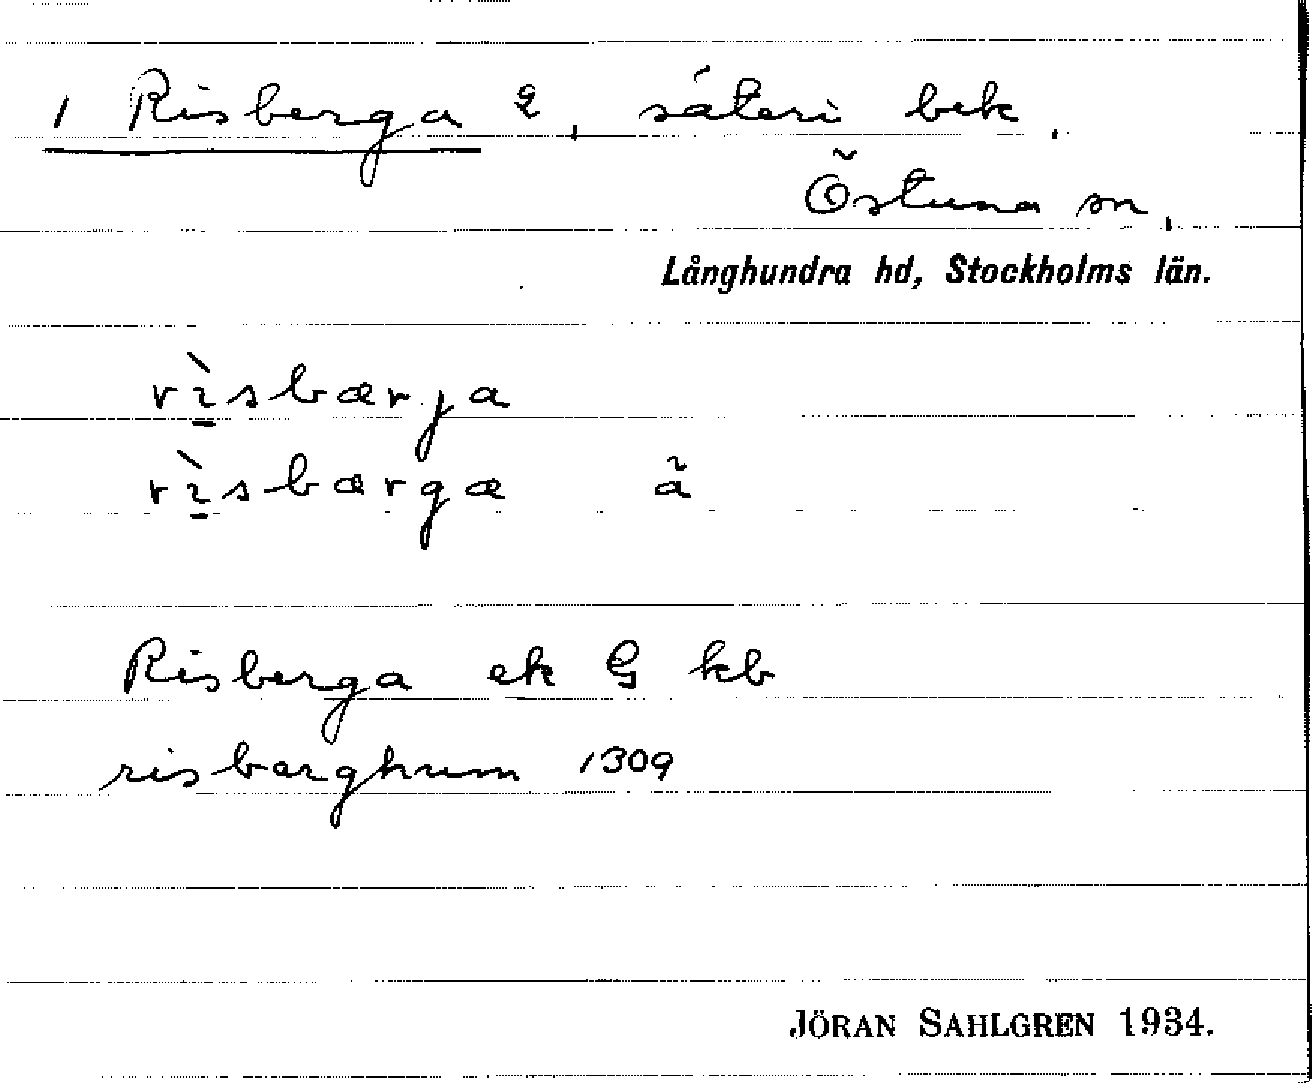 1 Risberga 2, säteri bek.
Östuna sn,
Långhundra hd, Stockholms län.
rìsbærja
rìsbærga ä̃
Risberga ek G kb
risbærghum 1309
JÖRAN SAHLGREN 1934.